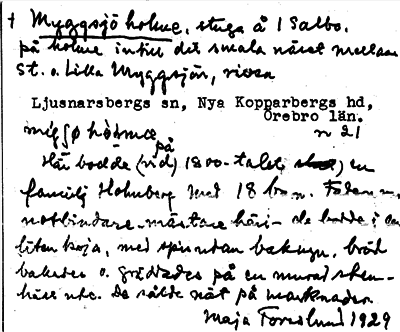 † Myggsjö holme, stuga å 1 Salbo,
på holme intill det smala näset mellan
St. o. Lilla Myggsjön, riven
Ljusnarsbergs sn, Nya Kopparbergs hd,
Örebro län.
n 21
Här bodde (vid) 1800-talet en
på
familj Holmberg med 18 barn. Fadern
notbindare-mästare
liten koja, med spis utan bakugn, bröd
bakades o. gräddades på en murad sten-
häll utc. De sålde nät på marknaden
Maja Forslund 1929